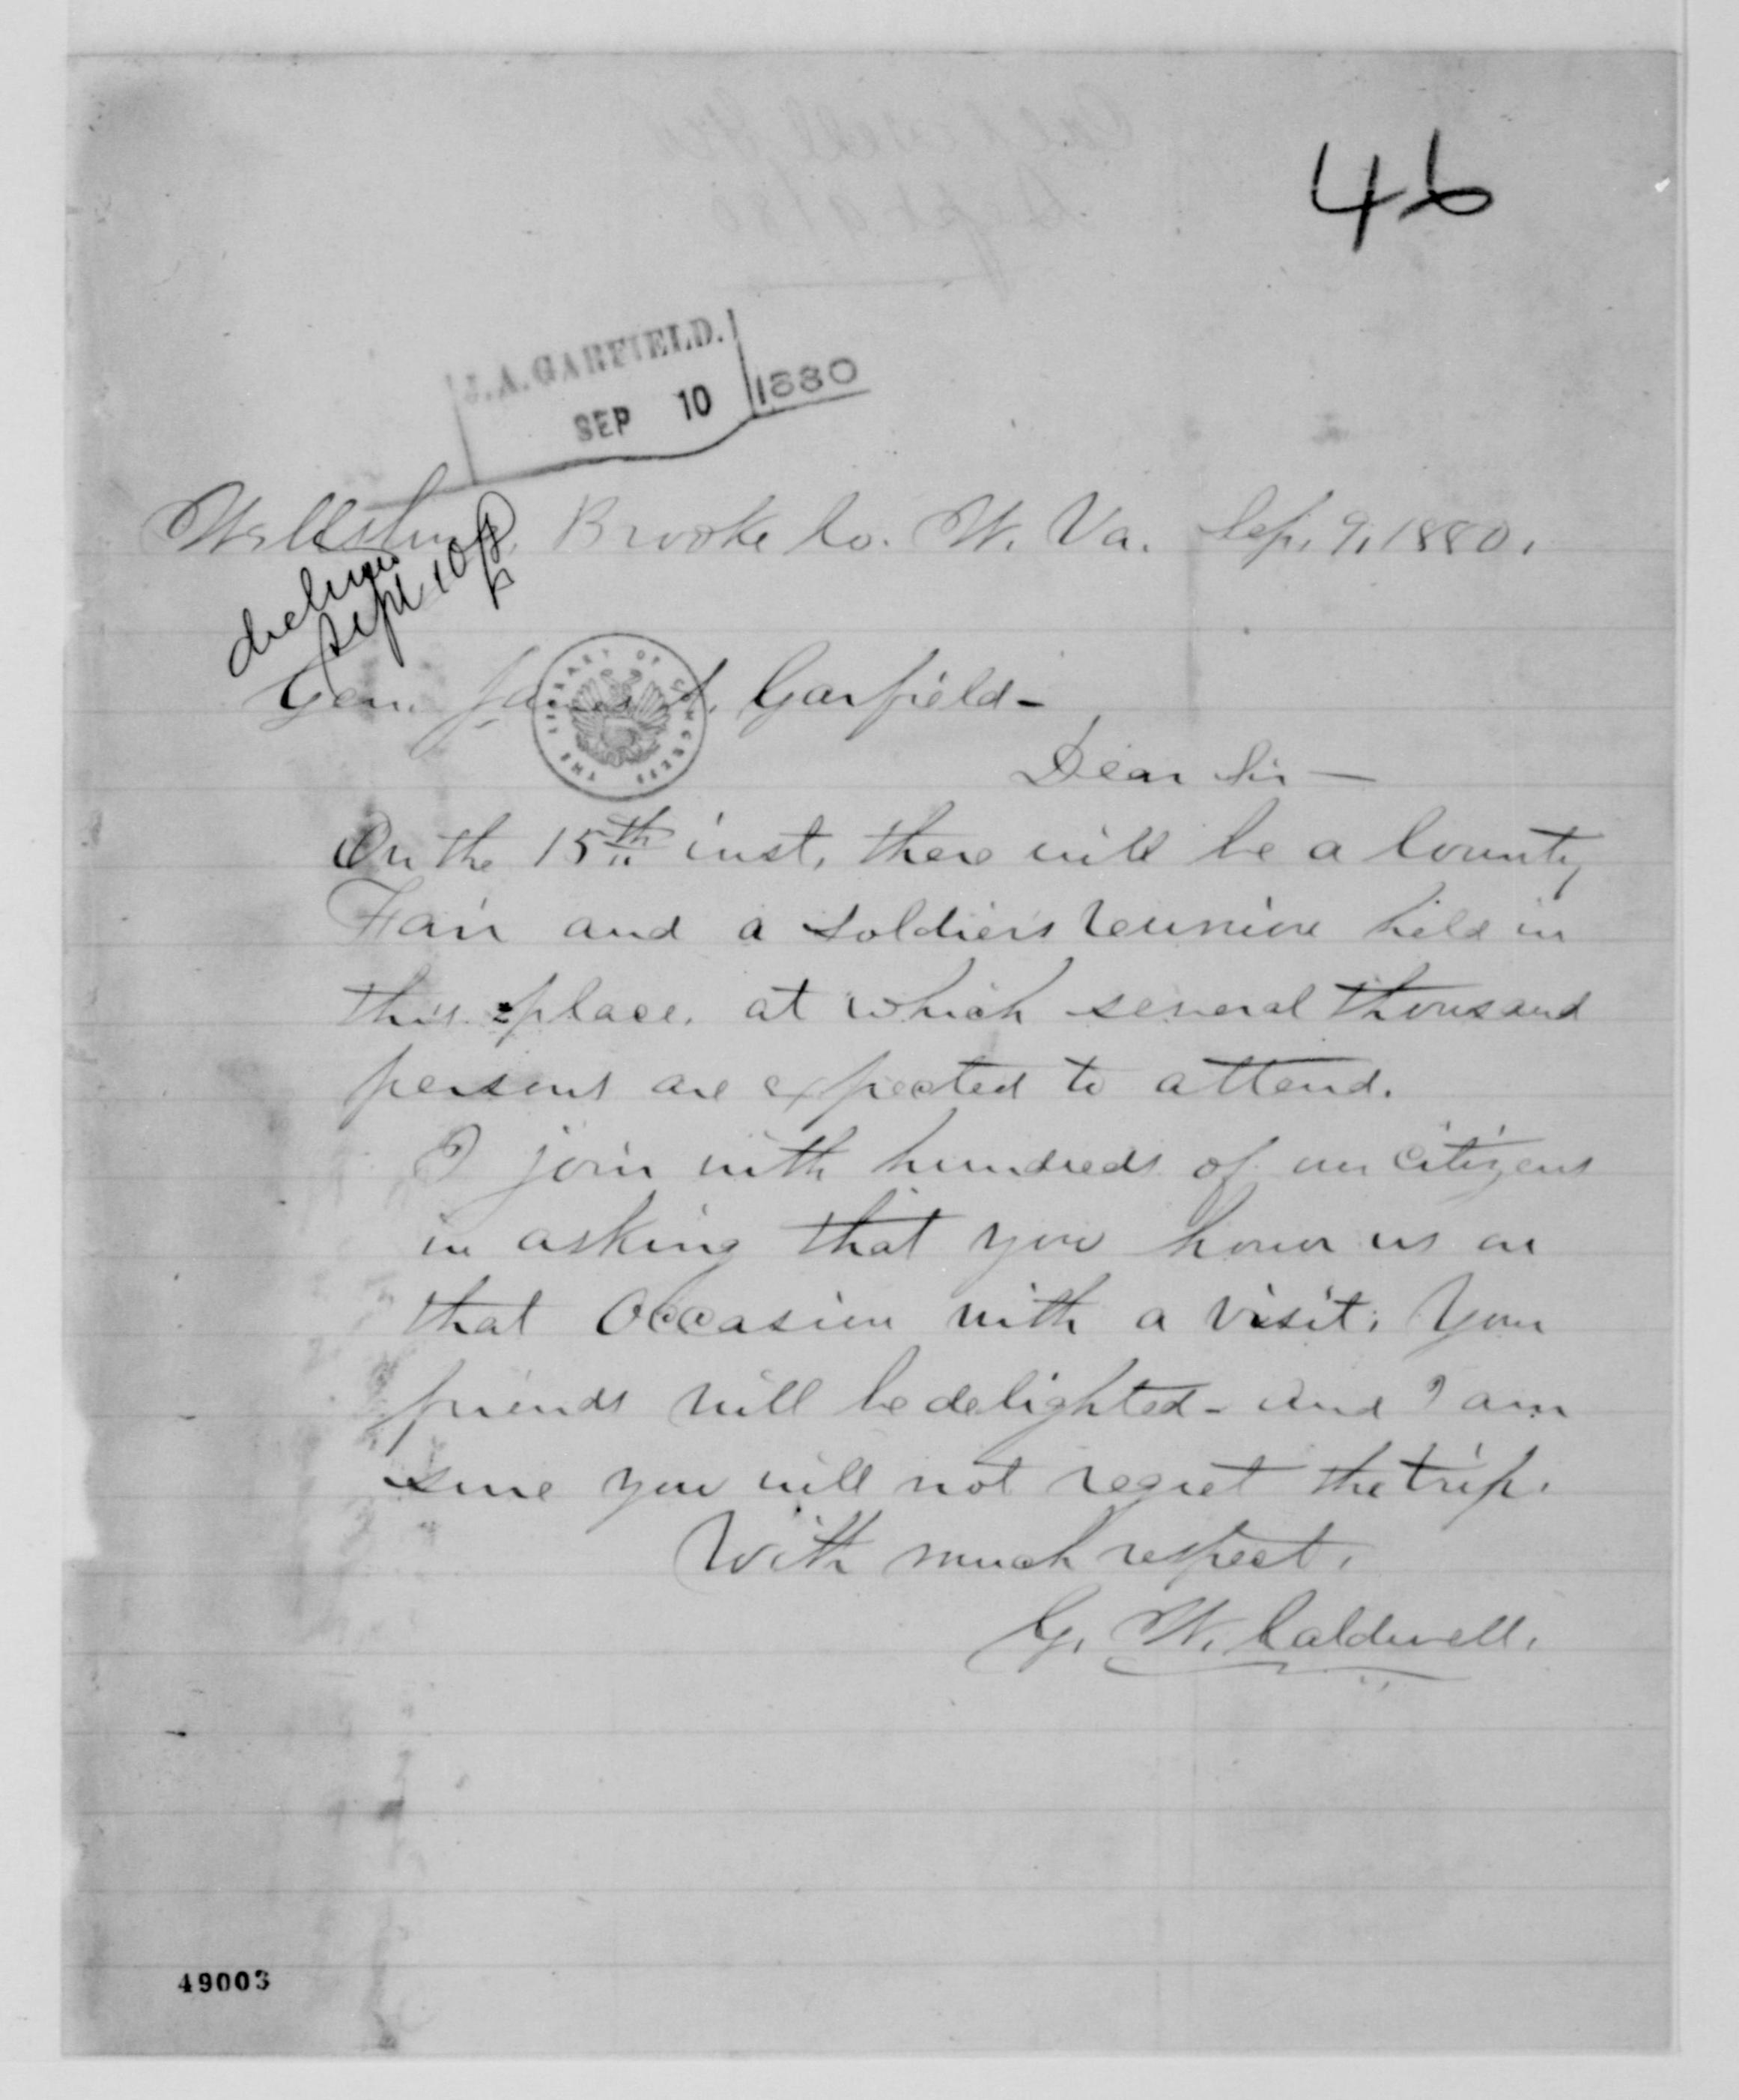 46
J.A. GARFIELD.
SEP 10 1880
Wellsburg, Brooke Co. W. Va. Sep. 9, 1880.
declined
Sept 10
Gen. James A. Garfield -
THE LIBRARY OF CONGRESS
Dear Sir —
On the 15th inst, there will be a County
Fair and a soldiers reunion held in
this place, at which several thousand
persons are expected to attend.
I join with hundreds of our citizens
in asking that you honor us on
that occasion with a visit. Your
friends will be delighted - and I am
sure you will not regret the trip.
With much respect,
G. W. Caldwell.
49003